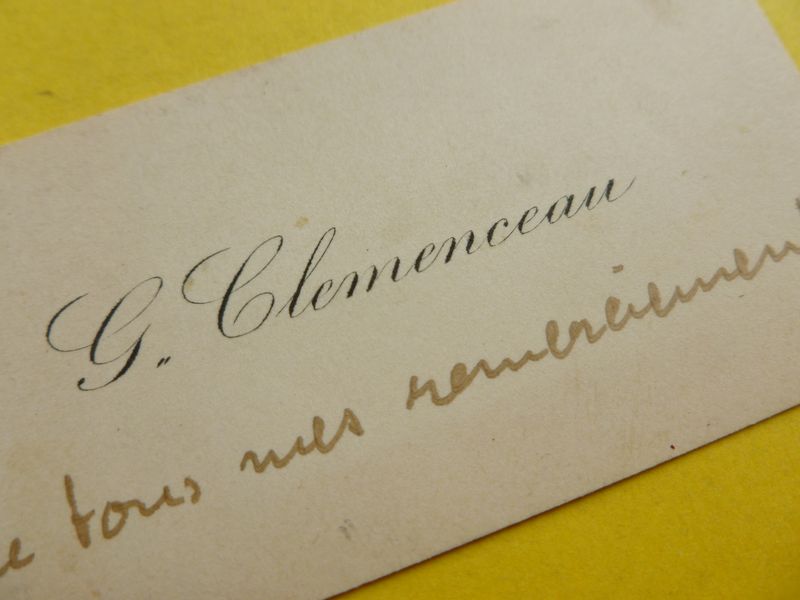 G. Clemenceau
tous mes remerciement